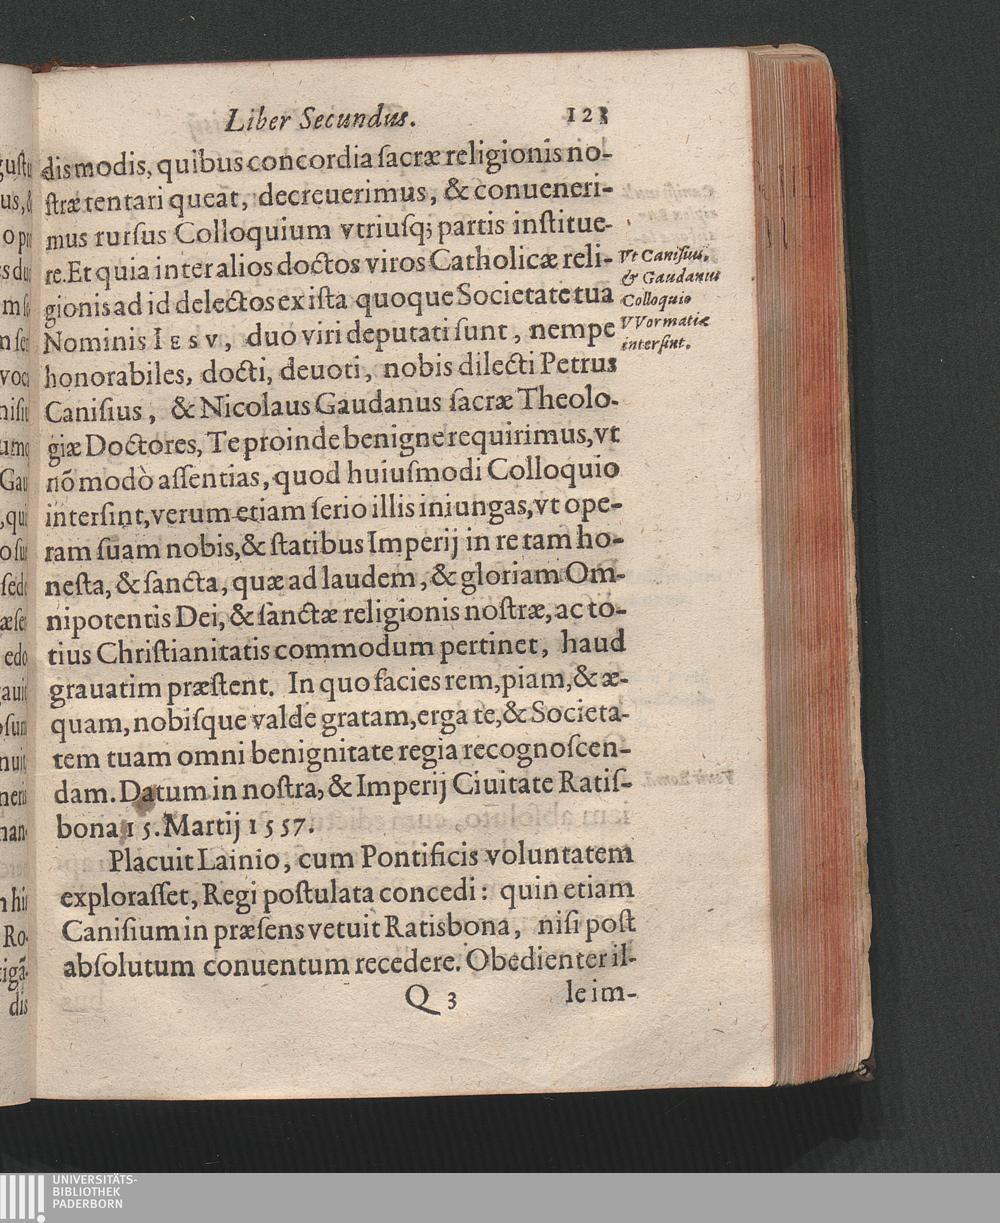 Liber Secundus. 123
dis modis, quibus concordia sacræ religionis no-
stræ tentari queat, decreuerimus, & conueneri-
mus rursus Colloquium vtriusq; partis institue-
re. Et quia inter alios doctos viros Catholicæ reli-
gionis ad id delectos ex ista quoque Societate tua
Nominis IESV, duo viri deputati sunt, nempe
honorabiles, docti, deuoti, nobis dilecti Petrus
Canisius, & Nicolaus Gaudanus sacræ Theolo-
giæ Doctores, Te proinde benigne requirimus, vt
nõ modò assentias, quod huiusmodi Colloquio
intersint, verum etiam serio illis iniungas, vt ope-
ram suam nobis, & statibus Imperij in re tam ho-
nesta, & sancta, quæ ad laudem, & gloriam Om-
nipotentis Dei, & sanctæ religionis nostræ, ac to-
tius Christianitatis commodum pertinet, haud
grauatim præstent. In quo facies rem, piam, & æ-
quam, nobisque valde gratam, erga te, & Societa-
tem tuam omni benignitate regia recognoscen-
dam. Datum in nostra, & Imperij Ciuitate Ratis-
bona 15. Martij 1557.
Placuit Lainio, cum Pontificis voluntatem
explorasset, Regi postulata concedi: quin etiam
Canisium in præsens vetuit Ratisbona, nisi post
absolutum conuentum recedere. Obedienter il-
Q 3 le im-
Vt Canisius,
& Gaudanus
Colloquio
VVormatiæ
intersint.
UNIVERSITÄTS-
BIBLIOTHEK
PADERBORN